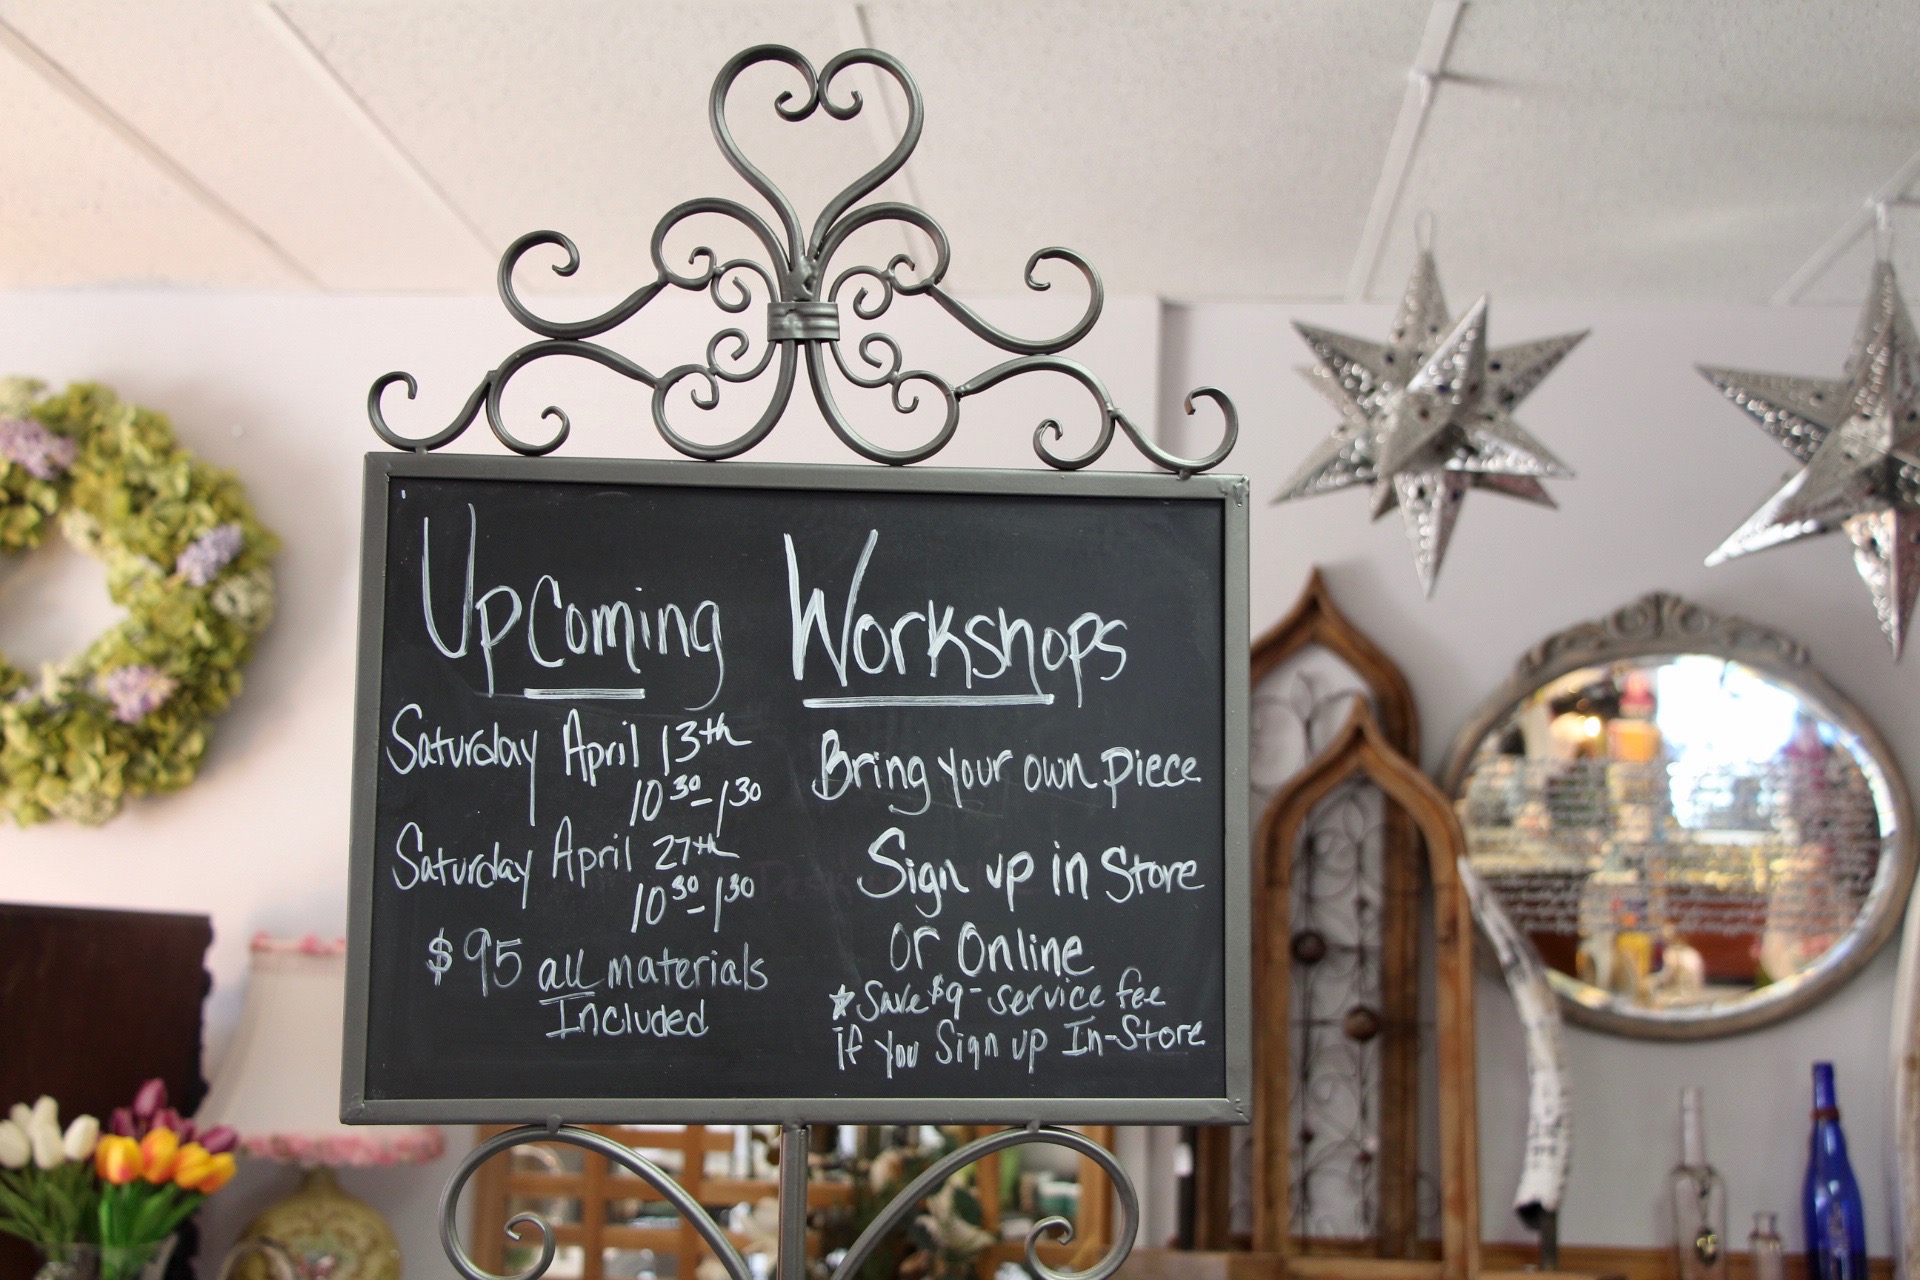 Upcoming Workshops
Saturday April 13th
10³⁰-1³⁰
Saturday April 27th
10³⁰-1³⁰
$95 all materials
Included
Bring your own piece
Sign up in Store
or Online
☆Save $9- service fee
if you Sign up In-Store